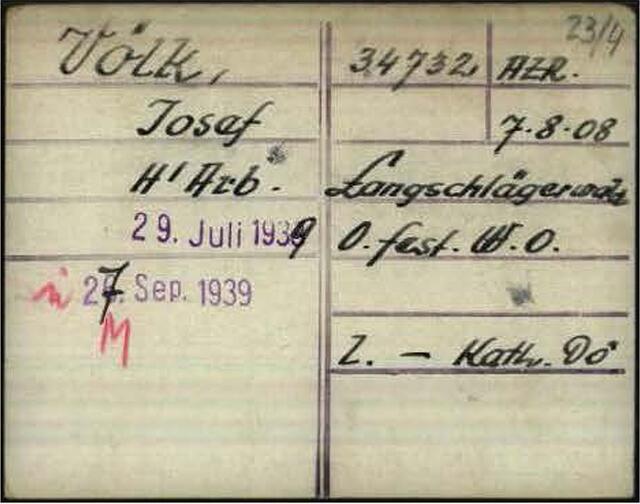 23/4
Völk,
34732, AZR.
Josef
7.8.08
H'Arb.
Langschlägerwald
29. Juli 1939
O. fest. W.O.
27. Sep. 1939
M
L. — Kath. Dö